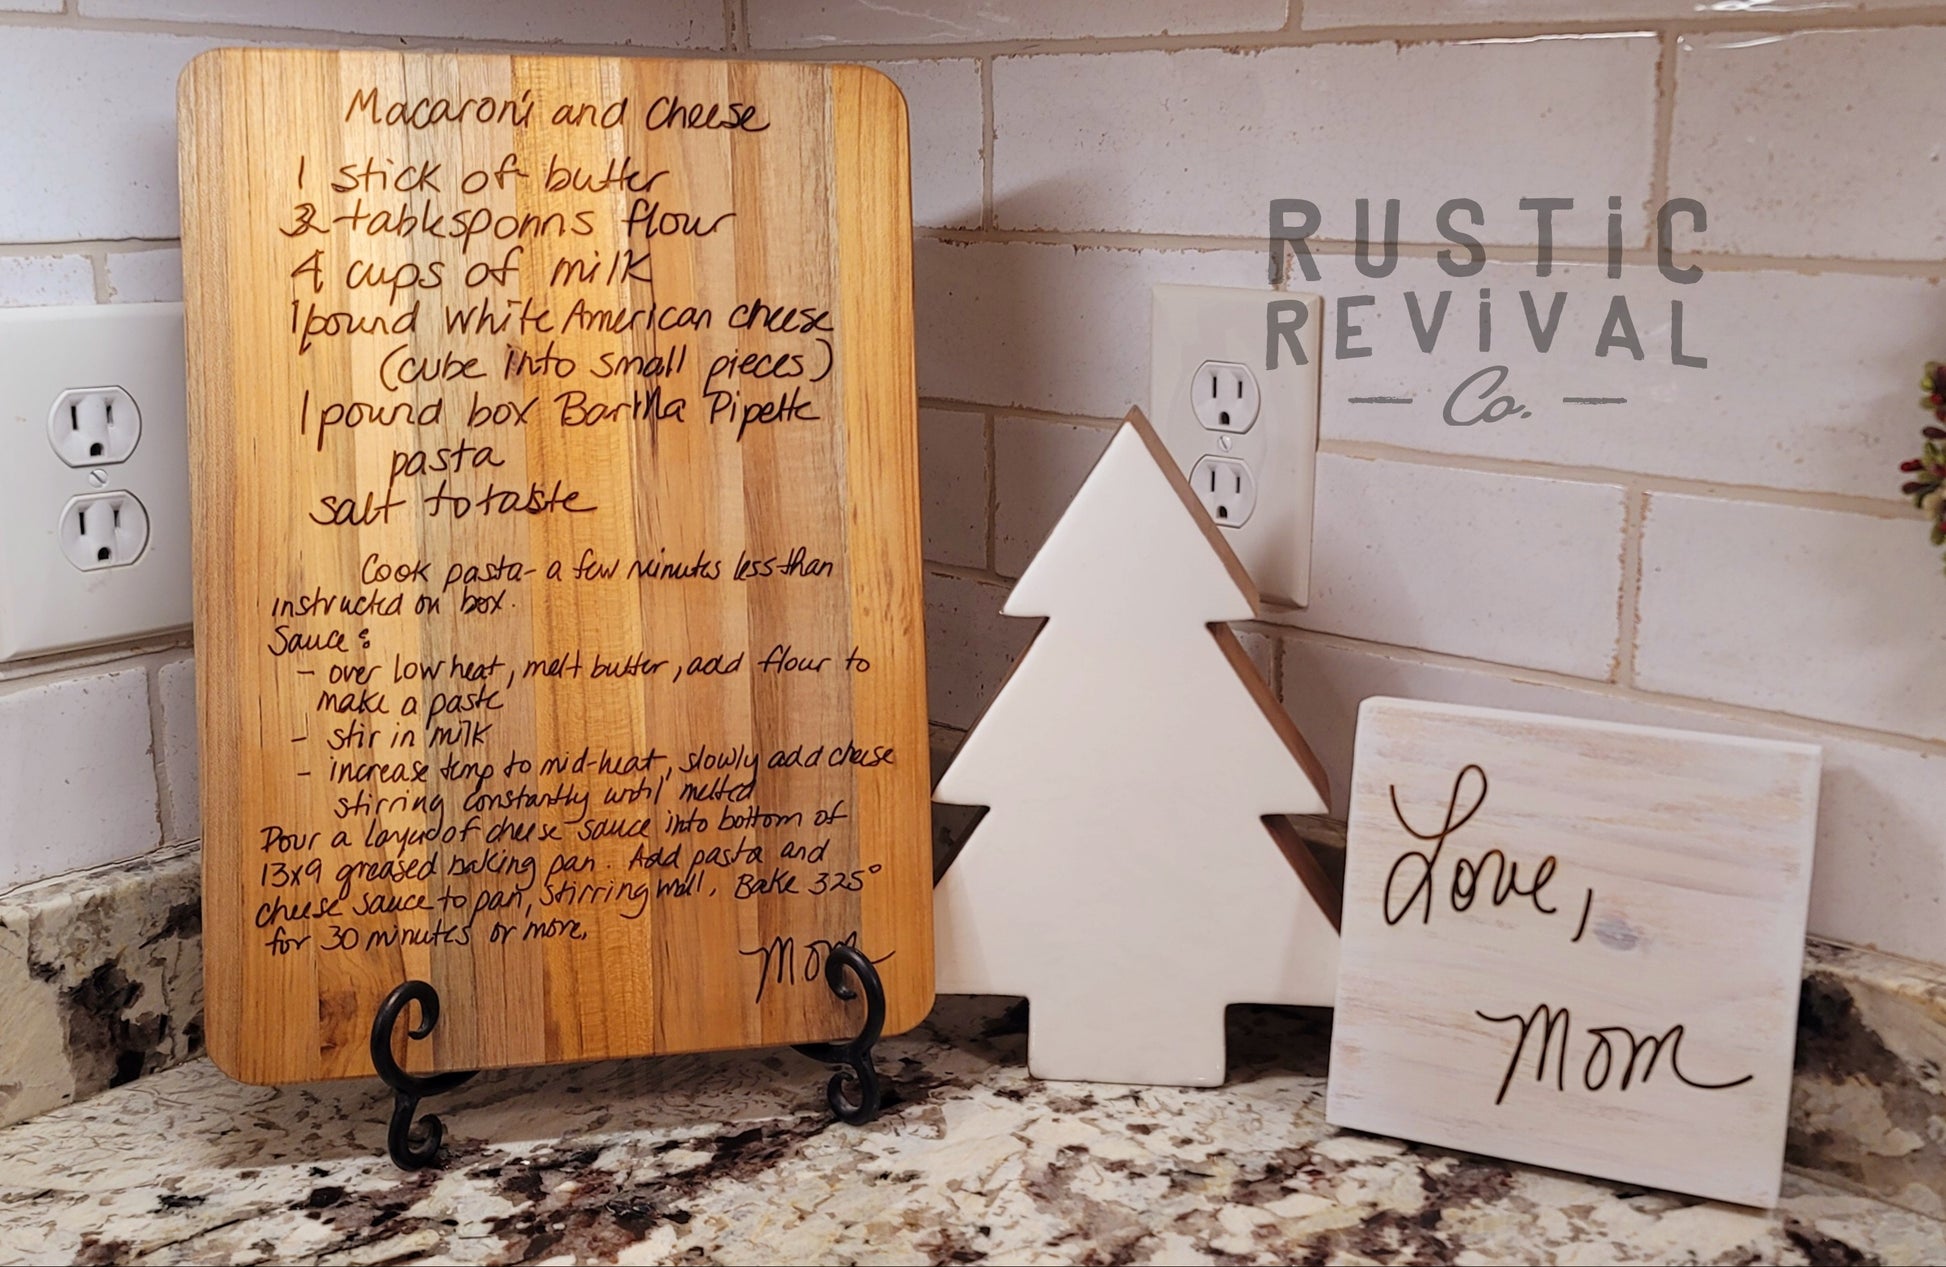 Macaroni and Cheese
1 stick of butter
tablesponns flour
4 cups of milk
1 pound White American cheese
(cube into small pieces)
1 pound box Barilla Pipette
pasta
salt to taste
Cook pasta - a few minutes less than
instructed on box.
Sauce:
- over low heat, melt butter, add flour to
make a paste
- stir in milk
- increase temp to mid-heat, slowly add cheese
stirring constantly until melted
Pour a layer of cheese sauce into bottom of
13x9 greased baking pan. Add pasta and
cheese sauce to pan, stirring well. Bake 325°
for 30 minutes or more.
Mom
RUSTiC
REViVAL
— Co. —
Love,
Mom